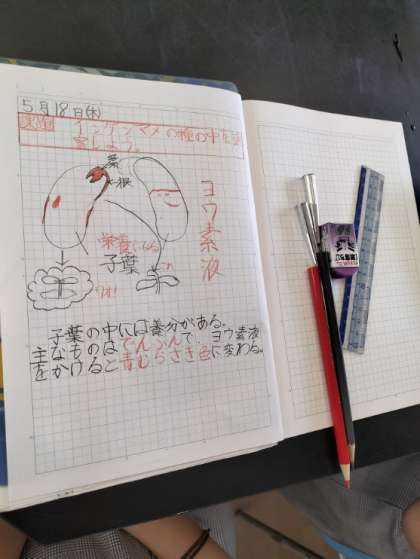 5月18日(木)
実験 インゲンマメの種の中を観
察しよう。
葉
根
ヨウ素液
栄養
子葉
子葉の中には養分がある。
主なものはでんぷんで、ヨウ素液
をかけると青むらさき色に変わる。